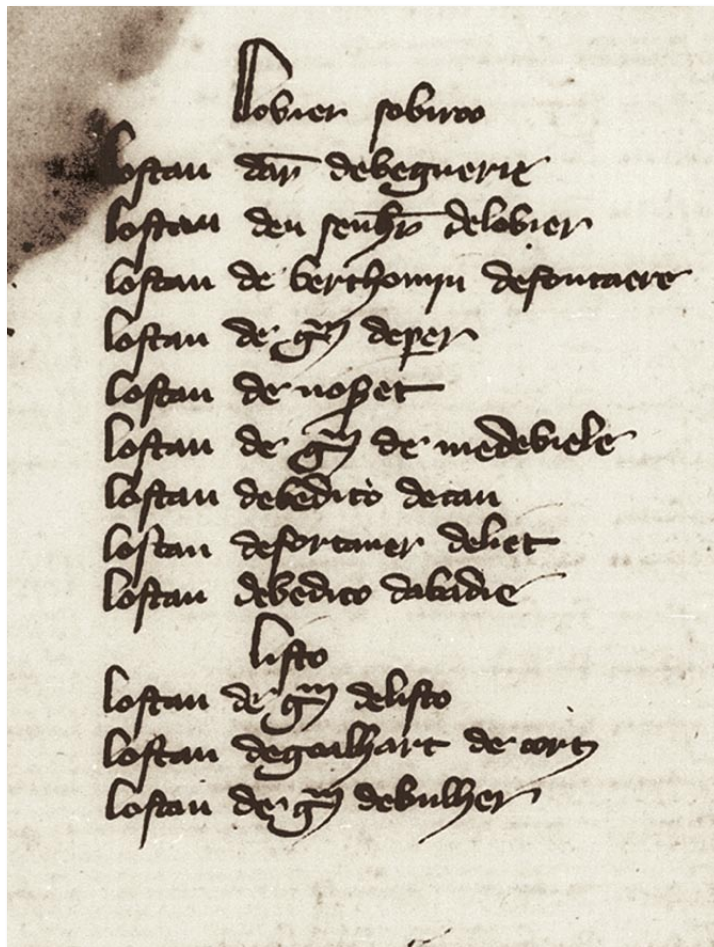 Lobier sobiroo
Lostau dar debeguerie
Lostau deu senhr delobier
Lostau de berthomiu defontaere
Lostau de gm deper
Lostau de noset
Lostau de gm de medebiele
Lostau debedico decau
Lostau defortaner deliet
Lostau debedico dabadie
Listo
Lostau de gm delisto
Lostau degoalhart de cort
Lostau de gm debulher